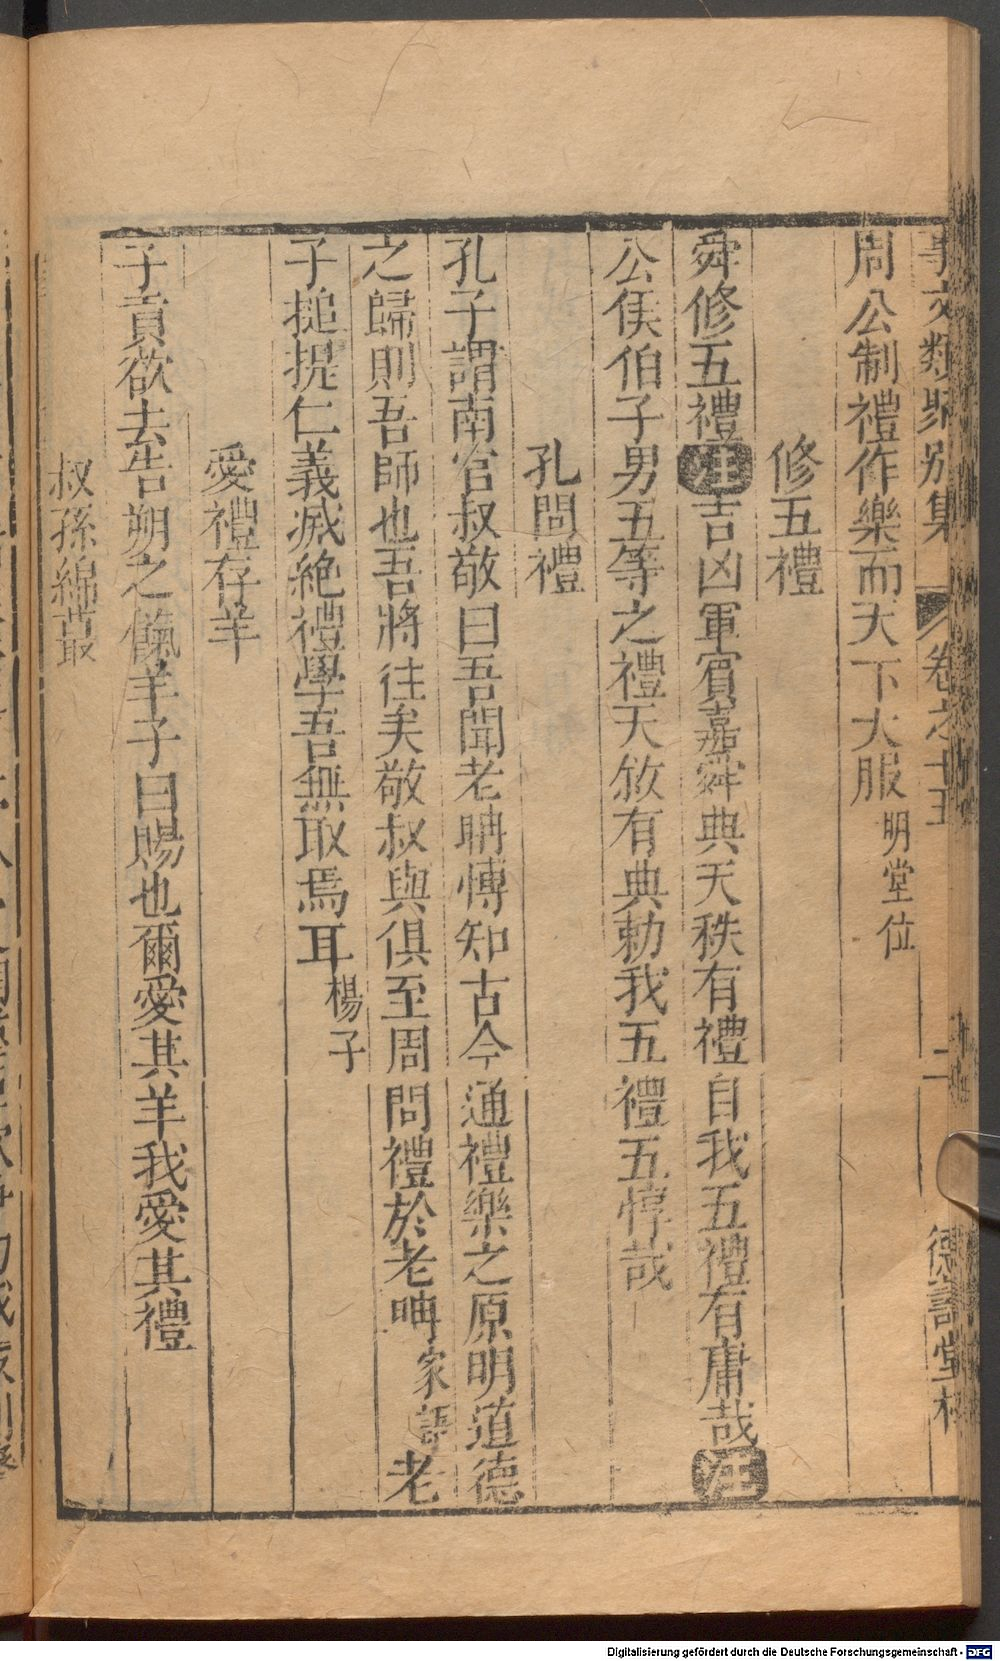 事文類聚別集 卷之十五 二 德壽堂梓
周公制禮作樂而天下大服明堂位
修五禮
舜修五禮注吉凶軍賓嘉舜典天秩有禮自我五禮有庸哉注
公侯伯子男五等之禮天敘有典勑我五禮五惇哉
孔問禮
孔子謂南宮叔敬曰吾聞老聃博知古今通禮樂之原明道德
之歸則吾師也吾將往矣敬叔與俱至周問禮於老聃家語老
子搥提仁義滅絕禮學吾無取焉耳楊子
愛禮存羊
子貢欲去告朔之餼羊子曰賜也爾愛其羊我愛其禮
叔孫綿蕞
Digitalisierung gefördert durch die Deutsche Forschungsgemeinschaft - DFG